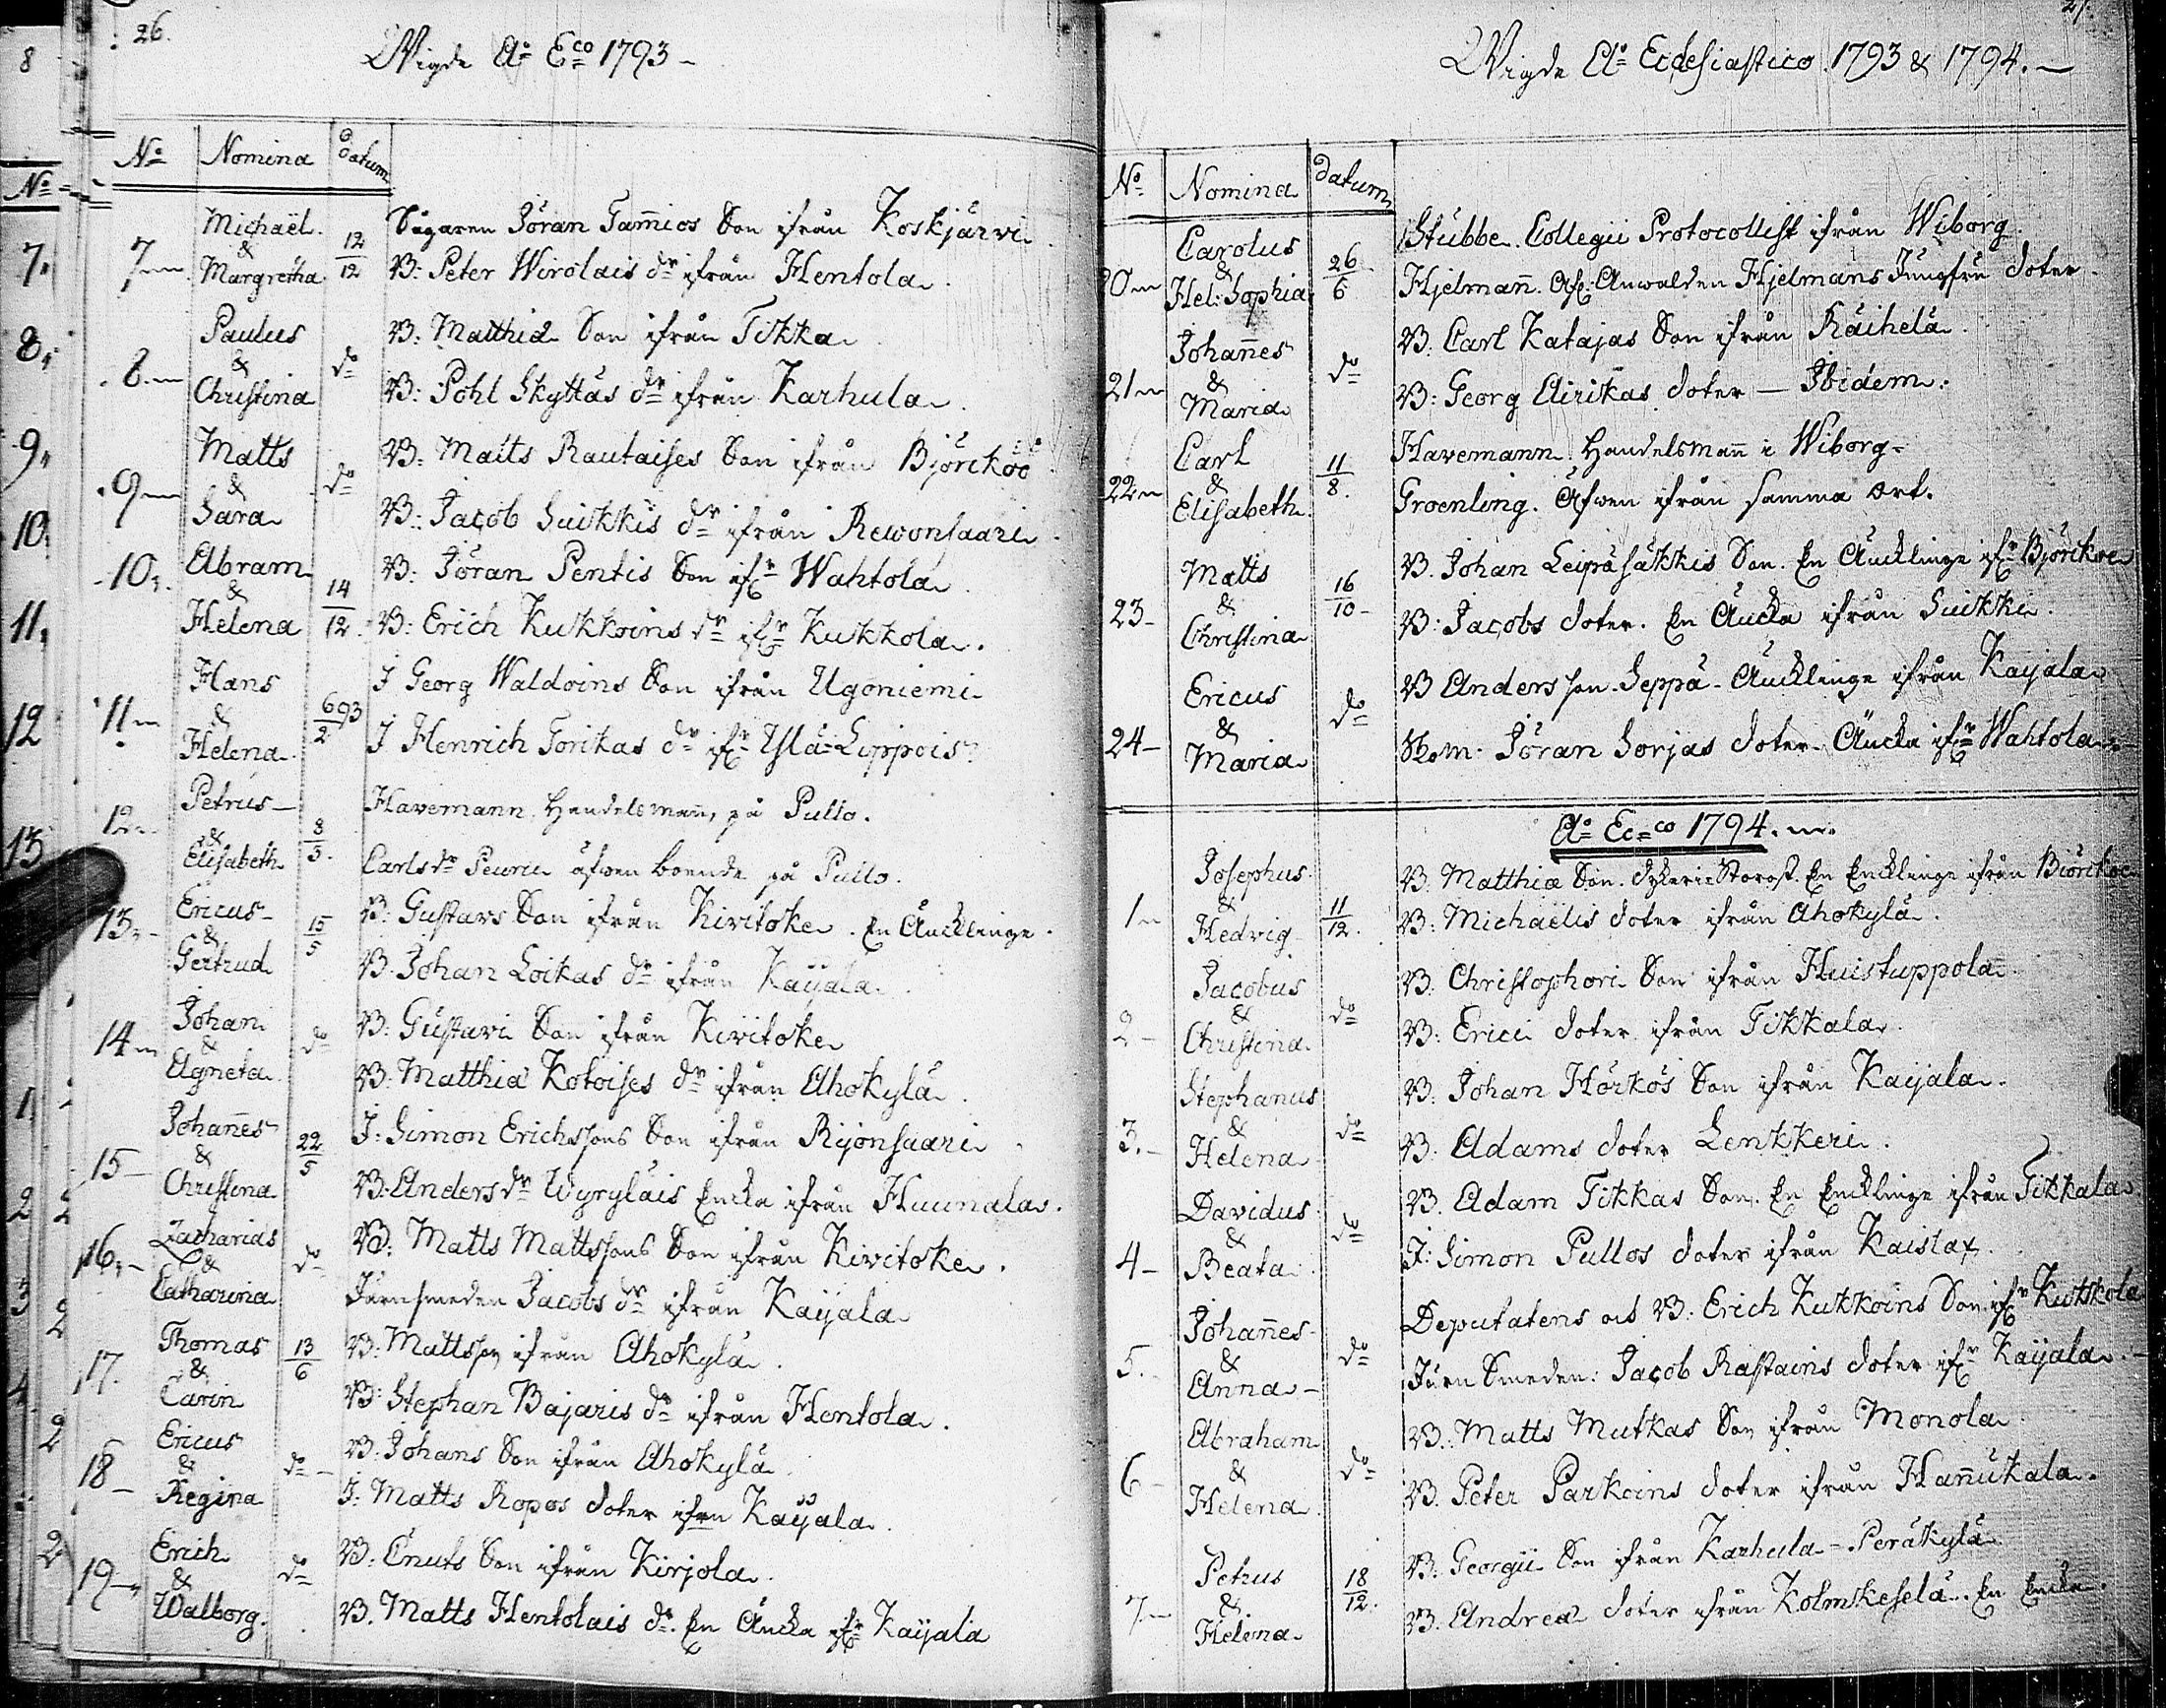 26.
Wigde Ao Eco 1793
No Nomina Datum
7 Michaël & Margretha 12/12
Sågaren Jöran Tamios Son ifrån Koskjärvi
B: Peter Wirolais dr ifrån Hentola
8 Paulus & Christina do
B: Matthiæ Son ifrån Tikka
B: Pohl Skyttäs dr ifrån Karhula
9 Matts & Sara do
B: Matts Rautaises Son ifrån Björckö
B: Jacob Suikkis dr ifrån Rewonsaari
10. Abram & Helena 14/12
B: Jöran Pentis Son ifr Wahtola
B: Erich Kukkoins dr ifr Kukkola.
11 Hans & Helena 6/2 93
I Georg Waldoins Son ifrån Ugoniemi
I Henrich Torikas dr ifr Ylä-Lippois
12 Petrus & Elisabeth 8/3.
Havemann Handelsman, på Pullo.
Carls dr Peurie äfwen boende på Pullo.
13 Ericus & Gertrud 15/5
B: Gustavs Son ifrån Kivitoke. En Äncklinge.
B. Johan Loikas dr ifrån Kaijala
14 Johan & Agneta do
B: Gustavi Son ifrån Kivitoke
B: Matthiæ Kotoises dr ifrån Ahokylä
15 Johañes & Christina 22/5
I: Simon Erichssons Son ifrån Rijonsaari
B: Anders dr Wyryläis Encka ifrån Huunala.
16 Zacharias & Catharina do
B: Matts Mattssons Son ifrån Kivitoke.
Järnsmeden Jacobs dr ifrån Kaijala
17. Thomas & Carin 13/6
B: Mattsson ifrån Ahokylä.
B: Stephan Bajaris dr ifrån Hentola.
18 Ericus & Regina do
B: Johans Son ifrån Ahokylä
I: Matts Ropos doter ifrån Kaijala.
19 Erich & Walborg. do
B: Cnuts Son ifrån Kirjola.
B. Matts Hentolais dr. En Äncka ifr Kaijala
Wigde Ao Ecclesiastico 1793 & 1794.
No Nomina Datum
20 Carolus & Hel: Sophia 26/6
Stubbe. Collegii Protocollist ifrån Wiborg.
Hjelmañ. Anwalden Hjelmans Jungfru doter
21 Johañes & Maria do
B. Carl Katajas Son ifrån Räihelä
B: Georg Airikas doter — Ibidem.
22 Carl & Elisabeth 11/8.
Havemann Handelsmañ i Wiborg
Groenling. Äfwen ifrån samma ort.
23 Matts & Christina 16/10
B. Johan Leipäsäkkis Son. En Äncklinge ifr Björckoe
B: Jacobs doter. En Äncka ifrån Suikki.
24 Ericus & Maria do
B Andersson Seppä Äncklinge ifrån Kaijala
Jöran Sorjas doter Äncka ifr Wahtola
Ao Ecco 1794.
1 Josephus & Hedvig 11/12.
B. Matthiæ Son. Starost. En Encklinge ifrån Biörckoe
B: Michaëlis doter ifrån Ahokylä.
2 Jacobus & Christina do
B. Christophori Son ifrån Huistuppola
B: Erici doter ifrån Tikkala.
3. Stephanus & Helena do
B: Johan Hörkös Son ifrån Kaijala.
B. Adams doter Lenkkeri.
4 Davidus & Beata do
B. Adam Tikkas Son. En Encklinge ifrån Tikkala
I: Simon Pullos doter ifrån Kaislax.
5. Johañes & Anna do
Deputatens B. Erich Kukkoins Son ifr Kukkola
Järn Smeden: Jacob Rastains doter ifr Kaijala.
6 Abraham & Helena do
B. Matts Mutkas Son ifrån Monola
B. Peter Parkoins doter ifrån Hañukala.
7 Petrus & Helena 18/12.
B. Georgii Son ifrån Karhula-Peräkylä
B. Andreæ doter ifrån Kolmikeselä. En Encka.
8
No
7.
8.
9.
10.
11.
12
13